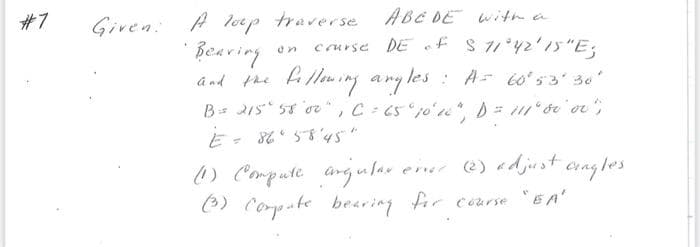 #7 Given: A loop traverse ABCDE with a
Bearing on course DE of S 71°42'15"E;
and the following angles: A= 60°53'30"
B= 215°58'00", C=65°10'10", D=111°00'00";
E= 86°58'45"
(1) Compute angular error (2) adjust angles
(3) Compute bearing for course "EA"